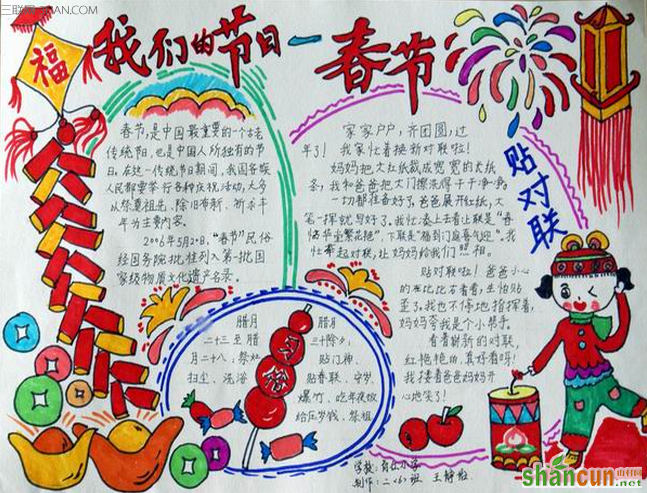 三联网 3LIAN.COM
福
我们的节日一春节
春节,是中国最重要的一个古老
传统节,也是中国人所独有的节
日。在这一传统节日期间,我国各族
人民都要举行各种庆祝活动,大多
以祭奠祖先、除旧布新、祈求丰
年为主要内容。
2006年5月20日,“春节”民俗
经国务院批准列入第一批国
家级物质文化遗产名录。
家家户户,齐团圆,过
年了!我家忙着换新对联啦!
妈妈把大红纸裁成宽宽的长纸
条,我和爸爸把大门擦洗得干干净净。
一切都准备好了,爸爸展开红纸,大
笔一挥就写好了。我忙凑上去看上联是“春
临华堂繁花艳”,下联是“福到门庭喜气迎”。我
忙举起对联,让妈妈给我们照相。
贴对联
贴对联啦!爸爸小心
的在比比右看看,生怕贴
歪了,我也不停地指挥着,
妈妈夸我是个小帮手。
看着崭新的对联,
红艳艳的,真好看呀!
我搂着爸爸妈妈开
心地笑了!
腊月
二十三至腊
月二十八:祭灶
扫尘、洗浴
腊月
三十除夕:
贴门神、
贴春联、守岁、
爆竹、吃年夜饭
给压岁钱、祭祖
学校:
制作:二(6)班 王静怡
shancun
山村网
.net